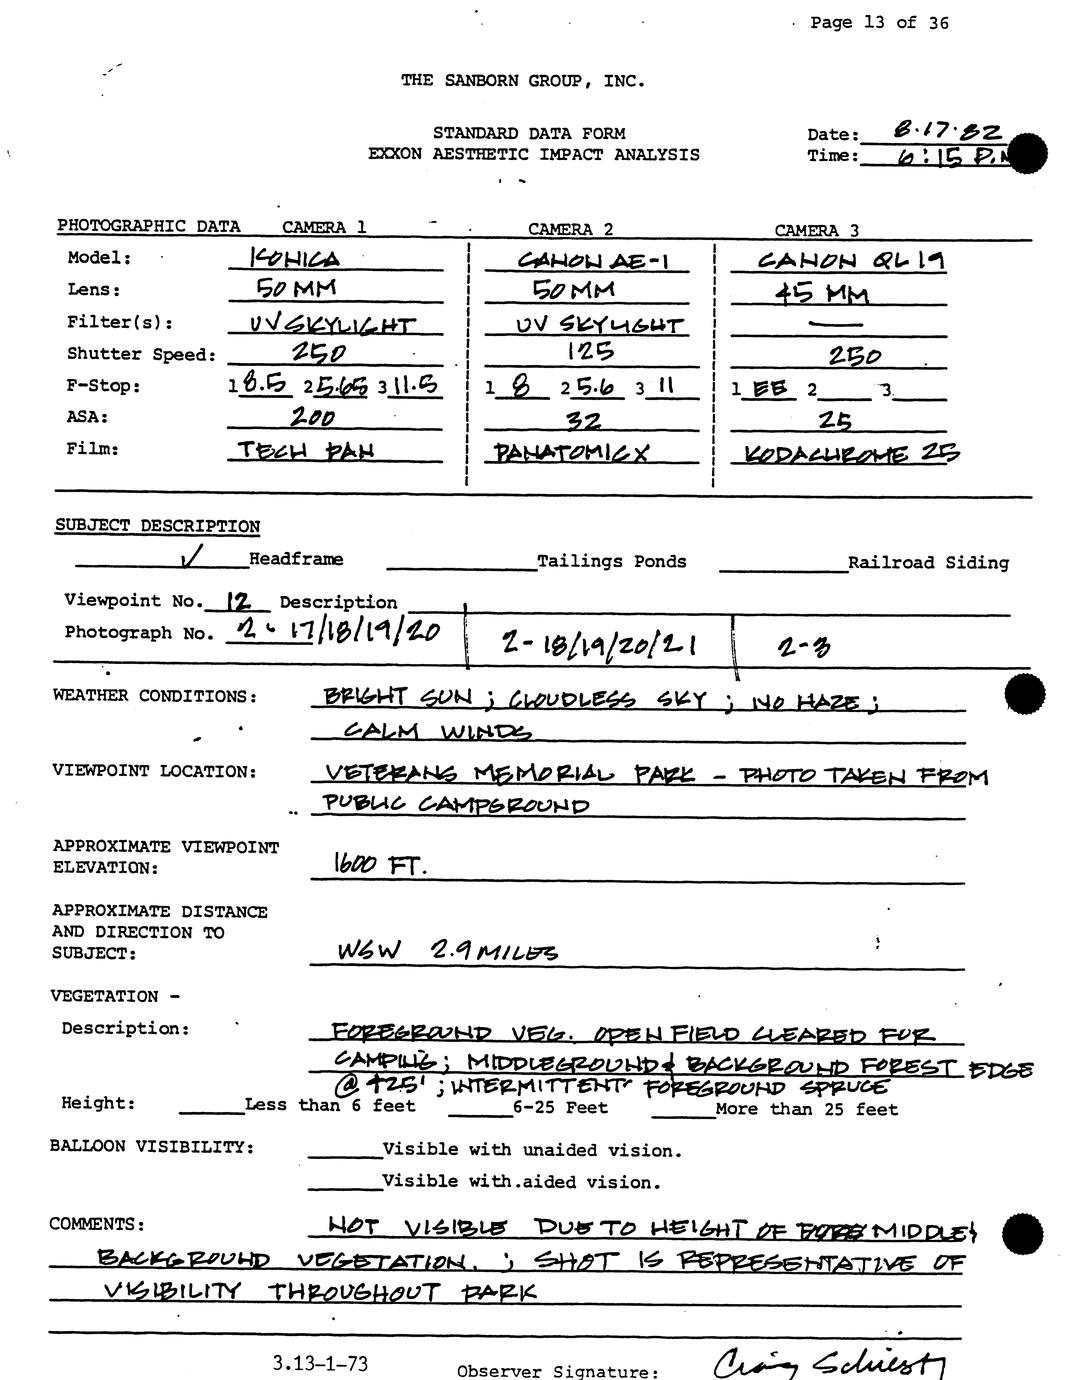 Page 13 of 36
THE SANBORN GROUP, INC.
STANDARD DATA FORM
EXXON AESTHETIC IMPACT ANALYSIS
Date: 8·17·82
Time: 6:15 P.M
PHOTOGRAPHIC DATA CAMERA 1 CAMERA 2 CAMERA 3
Model: KONICA CANON AE-1 CANON QL19
Lens: 50MM 50MM 45 MM
Filter(s): UV SKYLIGHT UV SKYLIGHT —
Shutter Speed: 250 125 250
F-Stop: 1 8.5 2 5.65 3 11.5 1 8 2 5.6 3 11 1 EE 2 3
ASA: 200 32 25
Film: TECH PAN PANATOMIC X KODACHROME 25
SUBJECT DESCRIPTION
✓ Headframe Tailings Ponds Railroad Siding
Viewpoint No. 12 Description
Photograph No. 2-17/18/19/20 2-18/19/20/21 2-3
WEATHER CONDITIONS: BRIGHT SUN ; CLOUDLESS SKY ; NO HAZE ;
CALM WINDS
VIEWPOINT LOCATION: VETERANS MEMORIAL PARK - PHOTO TAKEN FROM
PUBLIC CAMPGROUND
APPROXIMATE VIEWPOINT
ELEVATION: 1600 FT.
APPROXIMATE DISTANCE
AND DIRECTION TO
SUBJECT: WSW 2.9 MILES
VEGETATION -
Description: FOREGROUND VEG. OPEN FIELD CLEARED FOR
CAMPING; MIDDLEGROUND & BACKGROUND FOREST EDGE
@ 425' ; INTERMITTENT FOREGROUND SPRUCE
Height: Less than 6 feet 6-25 Feet More than 25 feet
BALLOON VISIBILITY: Visible with unaided vision.
Visible with.aided vision.
COMMENTS: NOT VISIBLE DUE TO HEIGHT OF MIDDLE &
BACKGROUND VEGETATION. ; SHOT IS REPRESENTATIVE OF
VISIBILITY THROUGHOUT PARK
3.13-1-73 Observer Signature: Craig